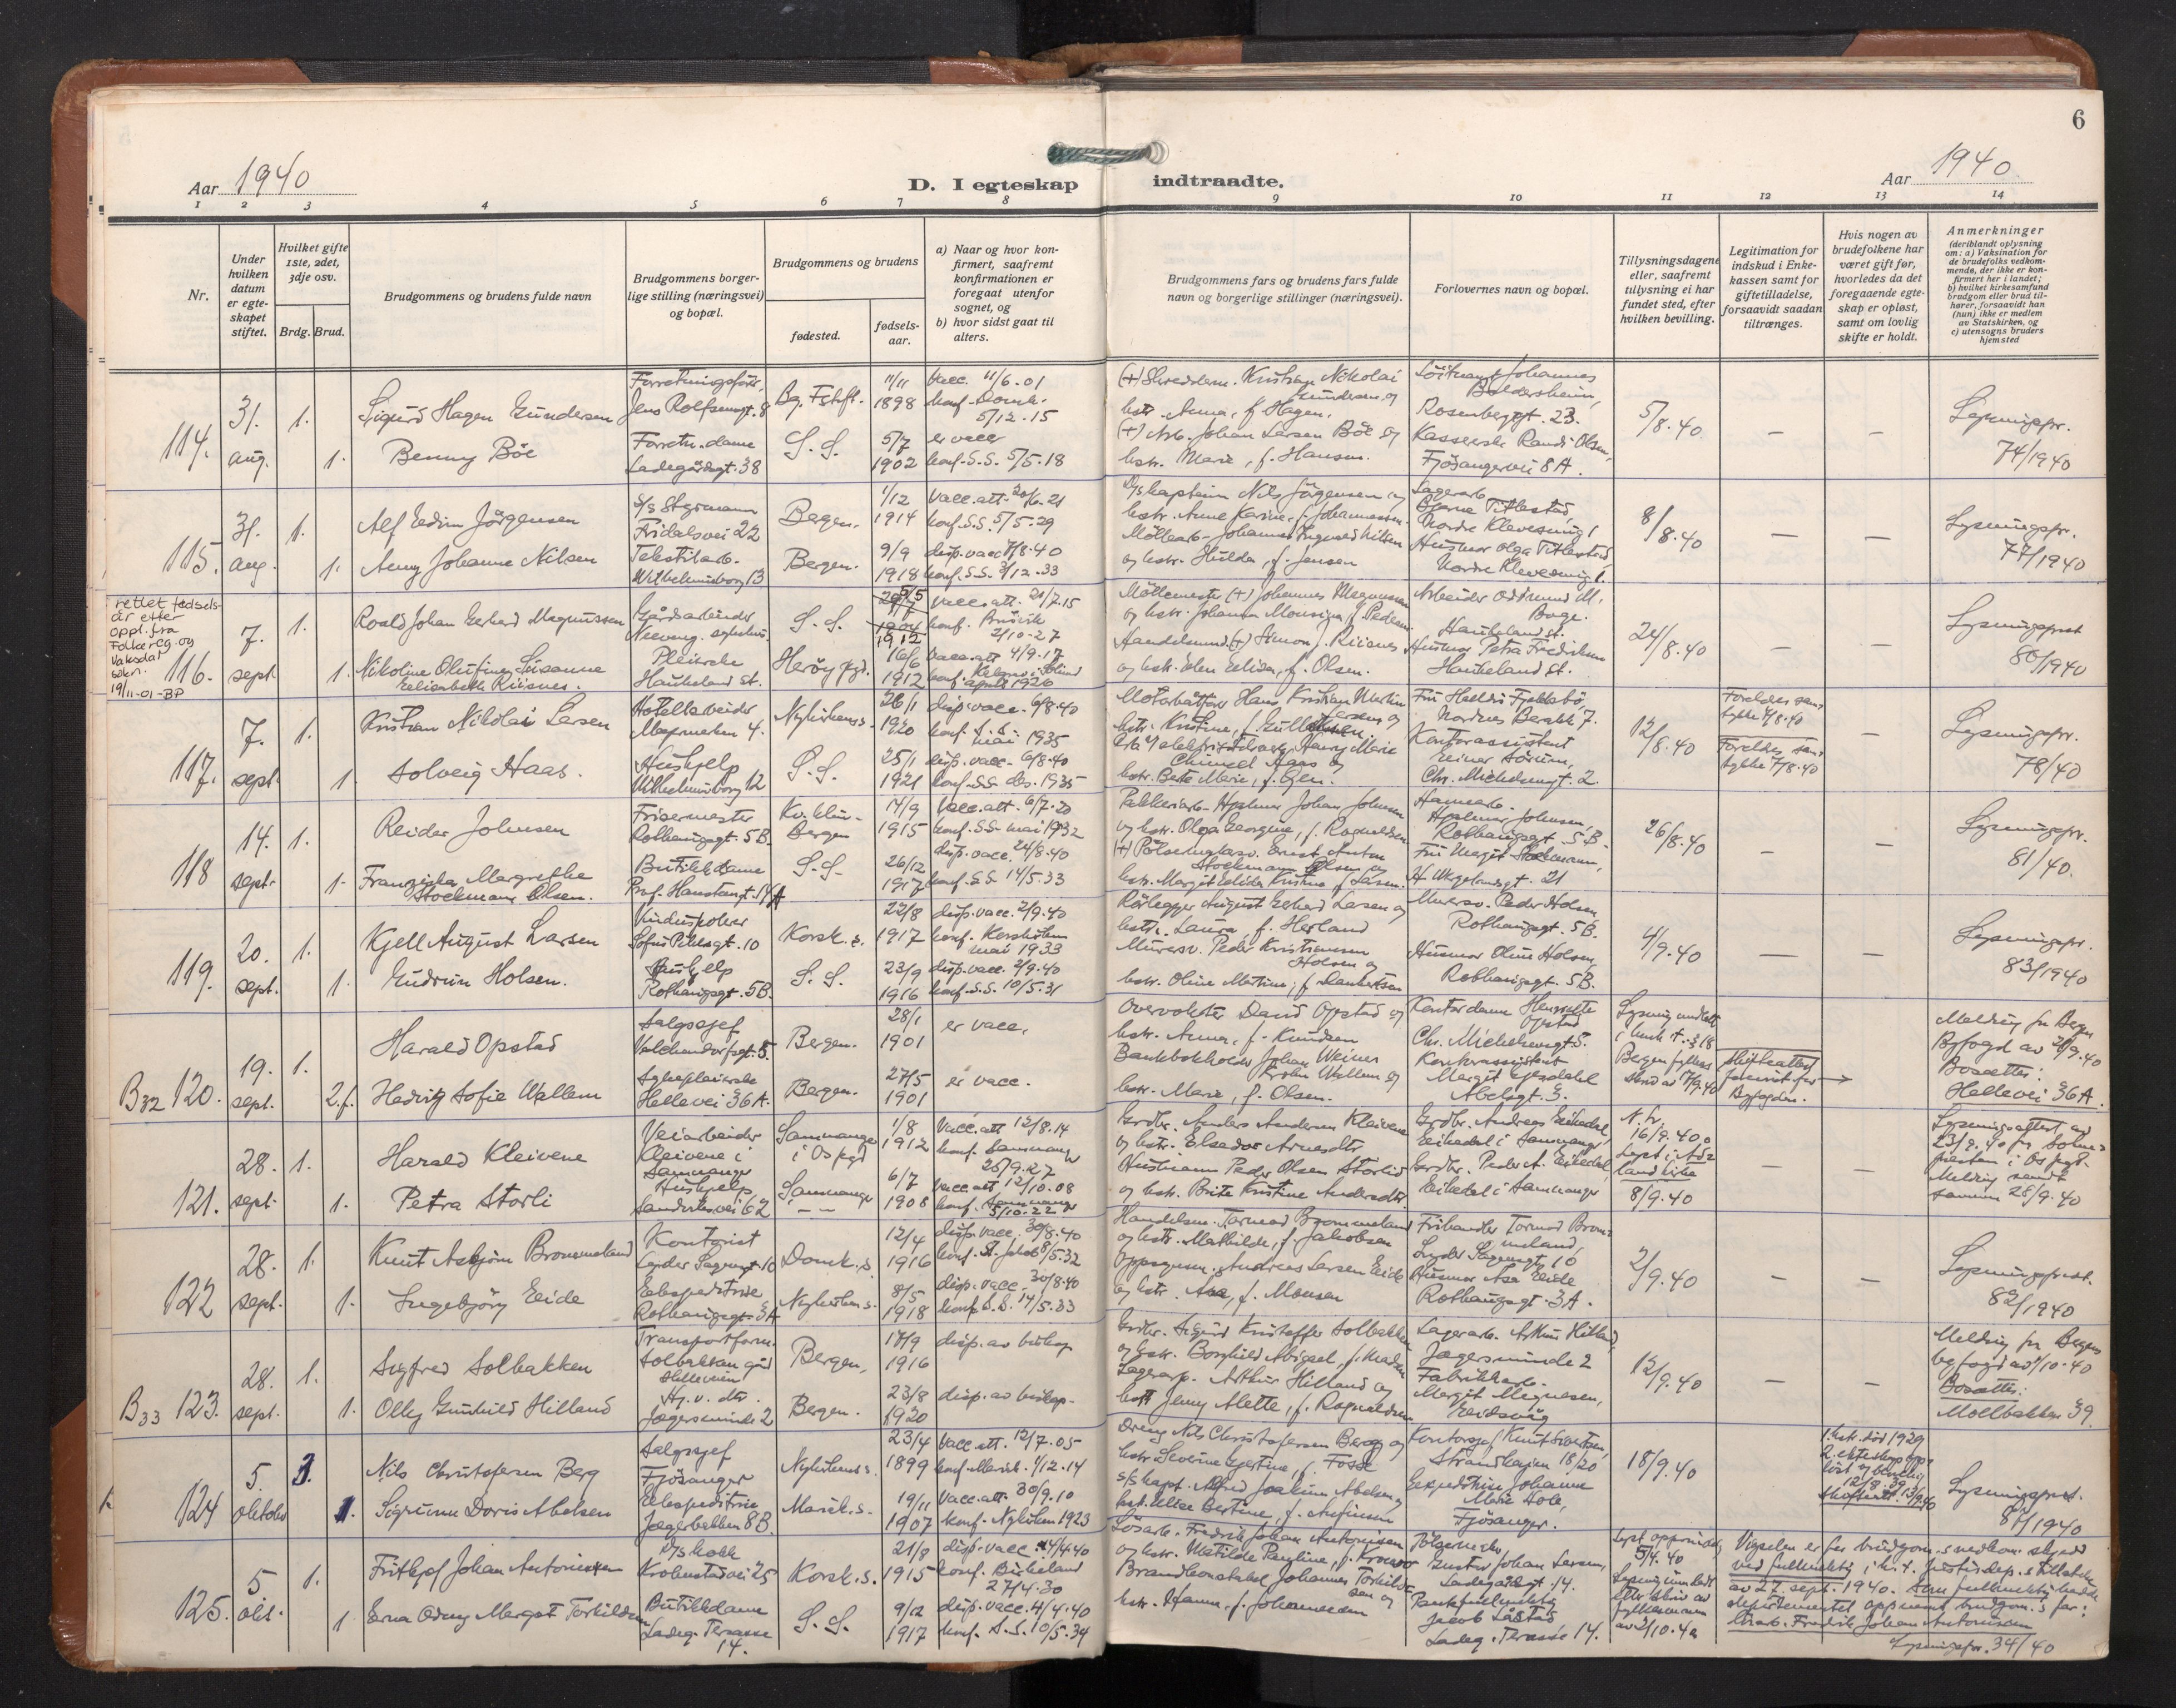 6
Aar 1940
D. I egteskap indtraadte.
Aar 1940
1 2 3 4 5 6 7 8 9 10 11 12 13 14
Nr.
Under hvilken datum er egteskapet stiftet.
Hvilket gifte 1ste, 2det, 3dje osv.
Brdg. Brud.
Brudgommens og brudens fulde navn
Brudgommens borgerlige stilling (næringsvei) og bopæl.
Brudgommens og brudens
fødested.
fødselsaar.
a) Naar og hvor konfirmert, saafremt konfirmationen er foregaat utenfor sognet, og
b) hvor sidst gaat til alters.
Brudgommens fars og brudens fars fulde navn og borgerlige stillinger (næringsvei).
Forlovernes navn og bopæl.
Tillysningsdagene eller, saafremt tillysning ei har fundet sted, efter hvilken bevilling.
Legitimation for indskud i Enkekassen samt for giftetilladelse, forsaavidt saadan tiltrænges.
Hvis nogen av brudefolkene har været gift før, hvorledes da det foregaaende egteskap er opløst, samt om lovlig skifte er holdt.
Anmerkninger
(deriblandt oplysning om: a) Vaksination for de brudefolks vedkommende, der ikke er konfirmert her i landet; b) hvilket kirkesamfund brudgom eller brud tilhører, forsaavidt han (hun) ikke er medlem av Statskirken, og c) utensogns bruders hjemsted
114. 31. aug. 1. Sigurd Hagen Gundersen
Jens Rolfsensgt. 8
11/11 1898
Vacc. 11/6.01
konf. Domk. 5/12.15
1. Benny Böe
Forretn.dame
Ladegårdsgt. 38
S. S.
5/7 1902
er vacc
konf. S.S. 5/5.18
(+) Kristian Nikolai Gundersen og
hstr. Anna, f. Hagen.
(+) Arb. Johan Larsen Böe og
hstr. Marie, f. Hansen.
Johannes Baldersheim,
Rosenberggt. 23.
Kasserske Randi Olsen,
Fjösangervei 8 A.
5/8.40
—
—
Lysningspr.
74/1940
115. 31. aug. 1. Alf Edvin Jörgensen
S/S Styrmann
Fridalsvei 22
Bergen.
1/12 1914
Vacc.att. 20/6.21
konf. S.S. 5/5.29
1. Anny Johanne Nilsen
Tekstilarb.
Wilhelmineborg 13
Bergen.
9/9 1918
disp. vacc 7/8.40
konf. S.S. 3/12.33
D/S kaptein Nils Jörgensen og
hstr. Anne Karine, f. Johannessen.
Möllearb. Johannes Ingvald Nilsen
og hstr. Hulda, f. Jensen
Lagerarb.
Bjarne Titlestad,
Nordre KleveSmug 1
Husmor Olga Titlestad,
Nordre Klevesmug 1.
8/8.40
—
—
Lysningspr.
77/1940
rettet fødsels-
år etter
oppl. fra
Folkereg. og
Vaksdal
sokn.
19/11-01-BP
116. 7. sept. 1. Roald Johan Gerhard Magnussen
Gårdsarbeider
S. S.
1904
1912
Vacc.att. 21/7.15
konf. Bruvik
2/10-27
1. Nikoline Olufine Susanne
Elisabeth Riisnes.
Pleierske
Haukeland st.
Heröy pgd.
16/6 1912
Vacc.att 4/9.17
april 1926
Möllemester (+) Johannes Magnussen
og hstr. Johanna Monsine f. Pedersen
Handelsmand (+) Simon J. Riisnes
og hstr. Elen Elida, f. Olsen.
Arbeider Oddmund M.
Boge.
Haukeland st.
Husmor Petra Fredriksen
Haukeland st.
24/8.40
—
—
Lysningspr.
80/1940
117. 7. sept. 1. Kristian Nikolai Larsen
Hotellarbeider
Nykirkens s.
26/1 1920
disp. vacc. 6/8.40
konf. S.S.
mai 1935
1. Solveig Haas.
Hushjelp
Wilhelmineborg 12
S. S.
25/1 1921
disp. vacc. 6/8.40
konf. S.S. des. 1935
Hans Kristian Martin
Larsen og
hstr. Kristine, f. Gulbrandsen
Haas og
hstr. Berte Marie, f. Gjen.
Nordnes Berakk 7.
Kontorassistent
Einar Sörum,
Chr. Michelsensgt. 2.
12/8.40
Foreldres sam-
tykke 7/8.40
Foreldres sam-
tykke 7/8.40
—
Lysningspr.
78/40
118 14. sept. 1. Reidar Johnsen
Frisermester
Rothaugsgt. 5B.
Kv. klin.
Bergen
14/9 1915
Vacc.att. 6/7.20
konf. S.S. mai 1932
1. Franziska Margrethe
Stockmann Olsen.
Butikkdame
Prof. Hansteensgt. 14 A
S. S.
26/12 1917
disp. vacc. 24/8.40
konf. S.S 14/5.33
Pakkeriarb. Hjalmar Johan Johnsen
og hstr. Olga Georgine, f. Rognaldsen
Stockmann Olsen og
hstr. Margit Elida Kristine, f. Larsen.
Havnearb.
Hjalmar Johnsen,
Rothaugsgt. 5B.
Fru Margit Stockmann,
H. Wergelandsgt. 21
26/8.40
—
—
Lysningspr.
81/40.
119. 20. sept. 1. Kjell August Larsen
Vinduspolerer
10
Korsk. s.
22/8 1917
disp. vacc. 2/9.40
konf. Korskirken
mai 1933
1 Gudrun Holsen.
Hushjelp
Rothaugsgt. 5B.
S. S.
23/9 1916
disp. vacc. 2/9.40
konf. S.S. 10/5.31
Rörlegger August Gerhard Larsen og
hstr. Laura, f. Herland
Muresv. Peder Kristiansen
Holsen og
hstr. Oline Martine, f. Lambertsen
Muresv. Peder Holsen,
Rothaugsgt. 5B.
Husmor Oline Holsen,
Rothaugsgt. 5B.
4/9.40
—
—
Lysningspr.
83/1940
B32 120. 19. sept. 1. Harald Opstad
Salgssjef
Valckendorfsgt. 5.
Bergen.
28/1 1901
er vacc.
2. f. Hedvig Sofie Wallem
Sykepleierske
Hellevei 36 A.
Bergen.
27/5 1901
er vacc.
Overvokter David Opstad og
hstr. Anna, f. Knudsen
Bankbokholder Johan Weiner
Wallem og
hstr. Marie, f. Olsen.
Kontordame Henriette
Opstad
Chr. Michelsensgt. 5.
Kontorassistent
Margit
Abelsgt. 3.
Skifteattest
forevist for
Byfogden. →
Melding fra Bergen
Byfogd av 21/9.40
Bosettes:
Hellevei 36 A.
121. 28. sept. 1. Harald Kleivene
Veiarbeider
Kleivene i
Samnanger
Samnanger
i Os pgd
1/8 1912
Vacc.att 12/8.14
konf. Samnanger
25/9.27
1. Petra Storli
Hushjelp
Sandviksvei 62
Samnanger
— —
6/7 1908
Vacc att 12/10.08
konf. Samnanger
5/10.22
Grdbr. Anders Andersen Kleivene
og hstr. Elsebe Arnesdtr.
Husmann Peder Olsen Storlid
og hstr. Brite Kristine Andersdtr.
Grdbr. Andreas Eikedal,
Eikedal i Samnanger
Grdbr. Peder A. Eikedal,
Eikedal i Samnanger
16/9.40
8/9.40
—
—
Lysningsattest av
23/9.40 fra Sokne-
presten i Os pgd.
Melding sendt
samme 28/9.40
122 28. sept. 1. Knut Asbjörn Brommeland
Kontorist
Lyder Sagensgt. 10
Domk. s.
12/4 1916
disp. vacc. 30/8.40
konf. St. Jakob 8/5.32
1. Ingebjörg Eide
Ekspeditrise
Rothaugsgt. 3A
Nykirkens s.
8/5 1918
disp. vacc. 30/8.40
konf. S.S. 14/5.33
Handelsm. Tormod Brommeland
og hstr. Mathilde, f. Jakobsen
Oppsynsm. Andreas Larsen Eide
og hstr. Asa, f. Monsen
Tormod Brom-
meland,
Lyder Sagensgt. 10
Husmor Asa Eide
Rothaugsgt. 3A.
2/9.40
—
—
Lysningsprot.
82/1940
B33 123. 28. sept. 1. Sigfred Solbakken
Transportform.
Solbakken gård
Helleveien
Bergen.
17/9 1916
disp. av biskop
1. Olly Gunhild Hilland
Hj. v. dtr.
Jægersminde 2
Bergen.
23/8 1920
disp. av biskop.
Grdbr. Sigurd Kristoffer Solbakken
og hstr. Borghild Abigael, f. Madsen
Lagerarb. Arthur Hilland og
hstr Jenny Alette, f. Rognaldsen
Lagerarb. Arthur Hilland,
Jægersminde 2
Fabrikkarb.
Margit Magnesen,
Eidsvåg
12/9.40
—
—
Melding fra Bergen
byfogd av 1/10.40
Bosettes:
Möllbakken 39.
124 5. oktober 3. Nils Christofersen Berg
Salgssjef
Fjösanger
Nykirkens s.
23/4 1899
Vacc.att. 12/7.05
konf. Mariek. 1/12.14
1. Sigrunn Doris Abelsen
Ekspeditrise
Jægerbakken 8B.
Mariek. s.
19/11 1907
Vacc.att. 30/9.10
konf. Nykirken 1923
Nils Christofersen Berg og
hstr. Severine Gjertine, f. Fosse
S/S kapt. Alfred Joakim Abelsen og
hstr. Elise Bertine, f. Anfinsen
Kontorsjef Knut Sivertsen,
Strandkaien 18/20
Expeditrise Johanne
Marie Hole,
Fjösanger.
18/9.40
1. hstr. död 1929
2. ekteskap opp-
löst
12/8.39
—
Lysningsprot.
1940
125. 5 okt. 1. Frithjof Johan Antonisen
D/S kokk
Krohnstadvei 25
Korsk. s.
21/8 1915
disp. vacc. 4/4.40
konf. Birkeland
27/4.30
1 Erna Odny Margot Torkildsen
Butikkdame
Ladeg. Terasse
14.
S. S.
9/12 1917
disp. vacc. 4/4.40
konf. S.S. 10/5.34
Lösarb. Fredrik Johan Antonisen
og hstr. Matilde Pauline, f.
Brandkonstabel Johannes Torkild-
sen og
hstr. Hanna, f. Johannesen
Gustav Johan Larsen,
Ladegårdsgt. 14.
Bankfullmektig
Jacob Låstad
Ladeg. Terasse 14.
Lyst opprinnelig
5/4.40
Lysning unnlatt
etter skriv av
fylkesmann
av 2/10.40
Vigselen er for brudgom.s vedkom. skjedd
ved fullmektig i h. t. Justisdep.s tillatelse
av 27. sept. 1940. Som fullmektig hadde
departementet oppnevnt brudgom.s far:
Fredrik Johan Antonisen
Lysningspr. 34/40